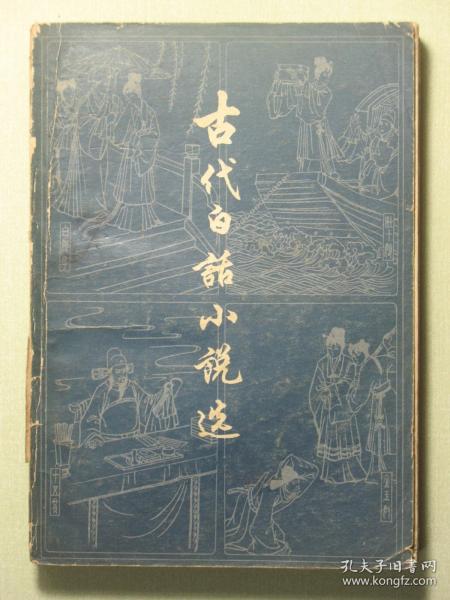 古代白話小説选
十五贯
孔夫子旧书网
www.kongfz.com